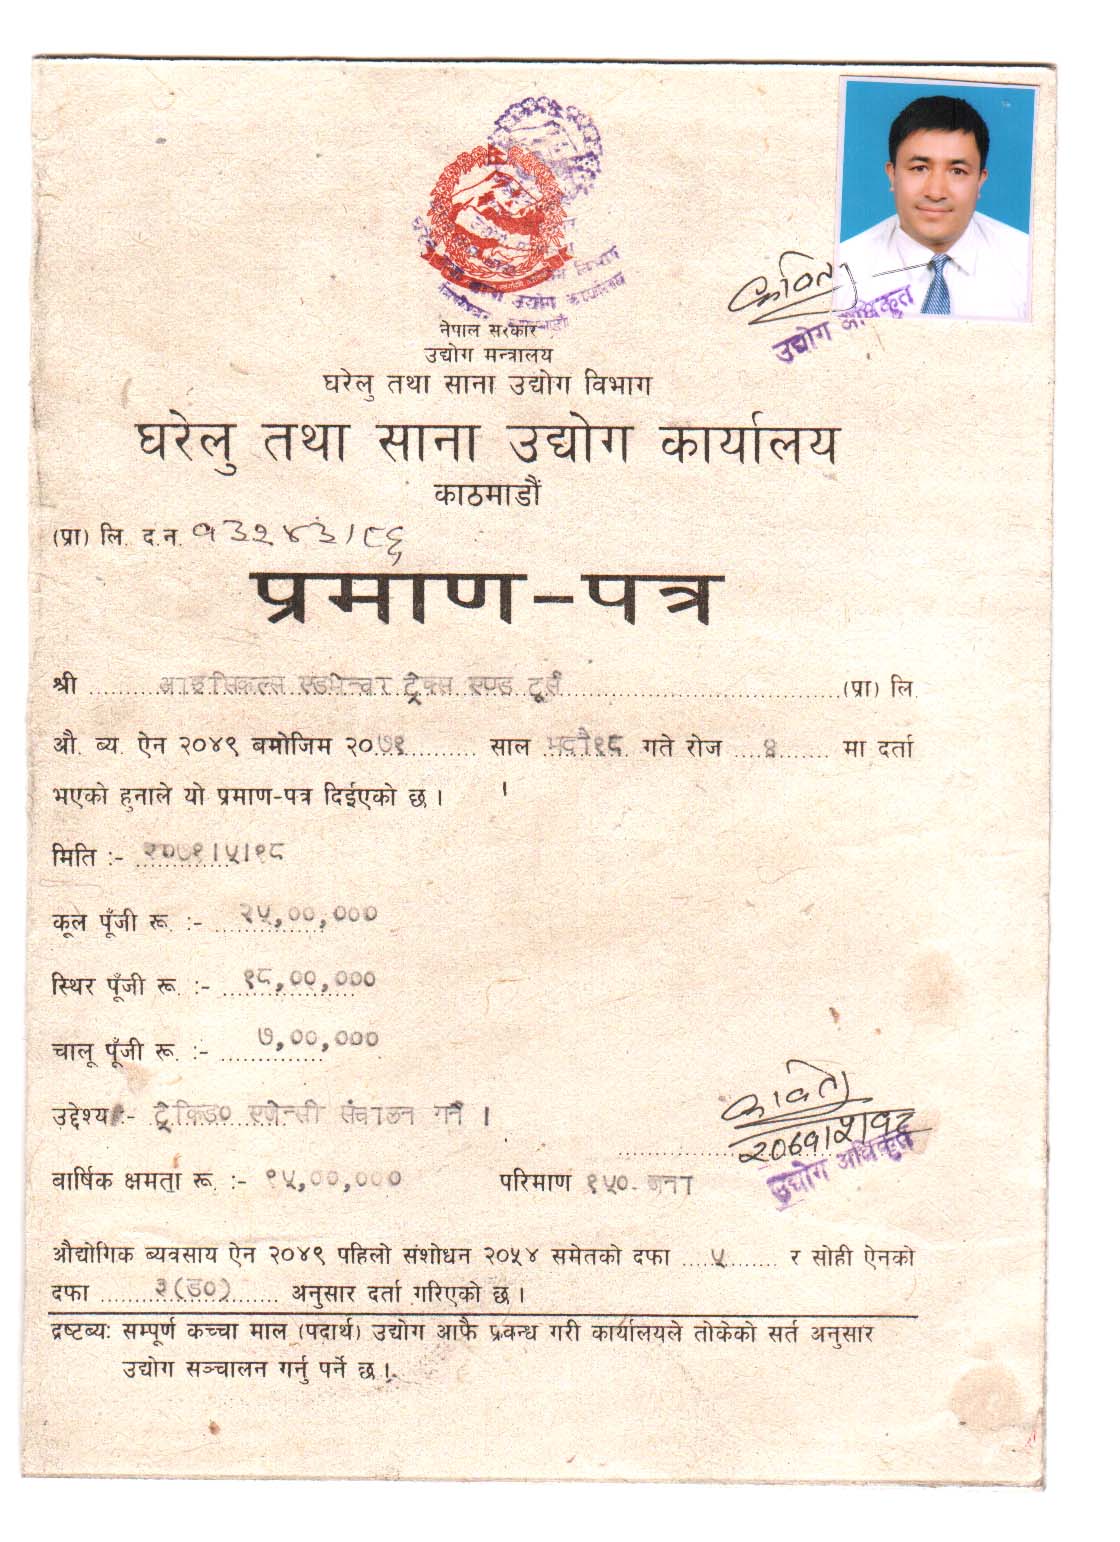 नेपाल सरकार
उद्योग मन्त्रालय
घरेलु तथा साना उद्योग विभाग
घरेलु तथा साना उद्योग कार्यालय
काठमाडौं
उद्योग अधिकृत
(प्रा) लि. द.न. १३२४३।८६
प्रमाण-पत्र
श्री आइसिकल्स एडभेन्चर ट्रेक्स एण्ड टूर्स (प्रा) लि.
औ. ब्य. ऐन २०४९ बमोजिम २०७१ साल भदौ१८ गते रोज ४ मा दर्ता
भएको हुनाले यो प्रमाण-पत्र दिईएको छ।
मिति :- २०७१।५।१८
कूल पूँजी रू. :- २५,००,०००
स्थिर पूँजी रू. :- १८,००,०००
चालू पूँजी रू. :- ७,००,०००
उद्देश्य :- ट्रेकिङ० एजेन्सी संचालन गर्ने ।
२०७१।५।१८
उद्योग अधिकृत
बार्षिक क्षमता रू. :- ९५,००,००० परिमाण १५०- जना
औद्योगिक ब्यवसाय ऐन २०४९ पहिलो संशोधन २०५४ समेतको दफा ५ र सोही ऐनको
दफा ३(ड०) अनुसार दर्ता गरिएको छ।
द्रष्टब्य: सम्पूर्ण कच्चा माल (पदार्थ) उद्योग आफै प्रवन्ध गरी कार्यालयले तोकेको सर्त अनुसार
उद्योग सञ्चालन गर्नु पर्ने छ।